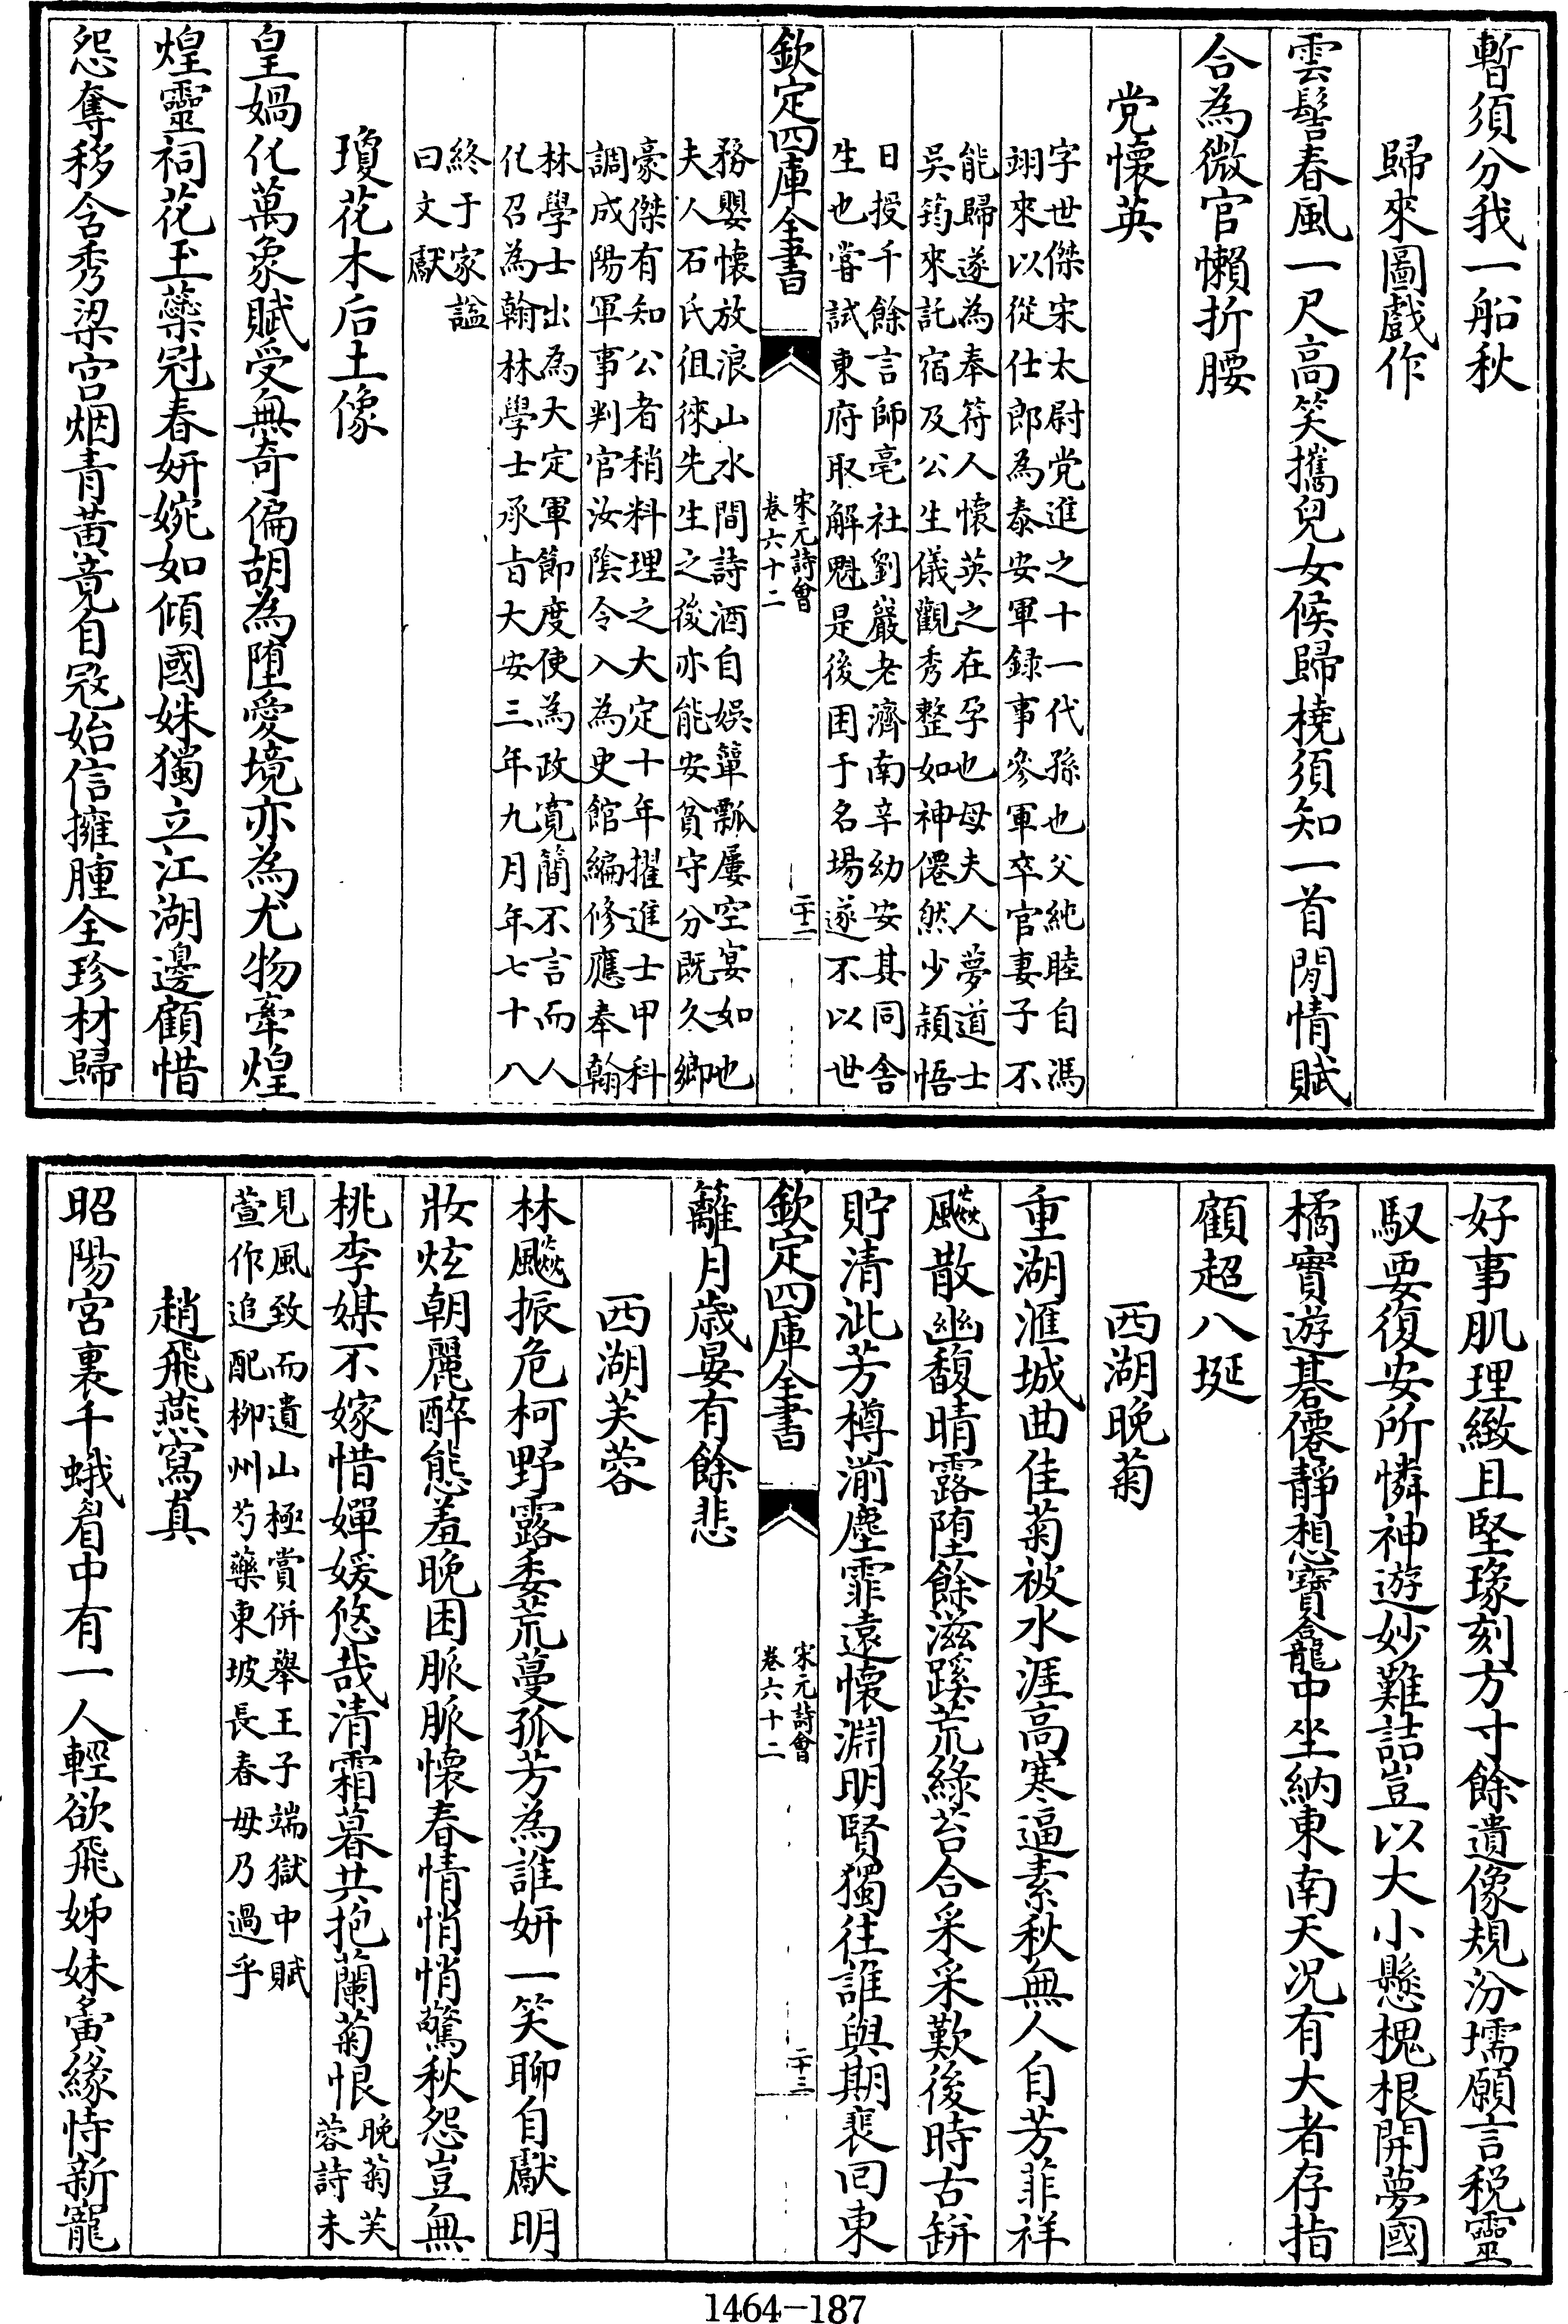 暫須分我一船秋
歸來圖戲作
雲髻春風一尺高笑攜兒女候歸橈須知一首閒情賦
合為微官懶折腰
党懷英
字世傑宋太尉党進之十一代孫也父純睦自馮
翊來以從仕郎為泰安軍録事參軍卒官妻子不
能歸遂為奉符人懷英之在孕也母夫人夢道士
吳筠來託宿及公生儀觀秀整如神僊然少穎悟
日授千餘言師亳社劉嚴老濟南辛幼安其同舍
生也嘗試東府取解魁是後困于名場遂不以世
欽定四庫全書
宋元詩會
卷六十二
二十二
務嬰懷放浪山水間詩酒自娛簞瓢屢空宴如也
夫人石氏徂徠先生之後亦能安貧守分既久鄉
豪傑有知公者稍料理之大定十年擢進士甲科
調成陽軍事判官汝陰令入為史館編修應奉翰
林學士出為大定軍節度使為政寛簡不言而人
化召為翰林學士承旨大安三年九月年七十八
終于家諡
曰文獻
瓊花木后土像
皇媧化萬象賦受無奇偏胡為墮愛境亦為尤物牽煌
煌靈祠花玉蘂冠春妍婉如傾國姝獨立江湖邊顧惜
怨奪移含秀梁宫烟青黄竟自寇始信擁腫全珍材歸
好事肌理緻且堅瑑刻方寸餘遺像規汾壖願言税靈
馭要復安所憐神遊妙難詰豈以大小懸槐根開夢國
橘實遊碁僊靜想寶龕中坐納東南天况有大者存指
顧超八埏
西湖晚菊
重湖滙城曲佳菊被水涯高寒逼素秋無人自芳菲祥
飈散幽馥晴露墮餘滋蹊荒綠苔合采采歎後時古缾
貯清泚芳樽湔塵霏遠懷淵明賢獨往誰與期裴回東
欽定四庫全書
宋元詩會
卷六十二
二十三
籬月歳晏有餘悲
西湖芙蓉
林飈振危柯野露委荒蔓孤芳為誰妍一笑聊自獻明
妝炫朝麗醉態羞晚困脈脈懷春情悄悄驚秋怨豈無
桃李媒不嫁惜嬋媛悠哉清霜暮共抱蘭菊恨晚菊芙
蓉詩未
見風致而遺山極賞併舉王子端獄中賦
萱作追配柳州芍藥東坡長春毋乃過乎
趙飛燕寫真
昭陽宮裏千蛾眉中有一人輕欲飛姊妹夤緣恃新寵
1464-187